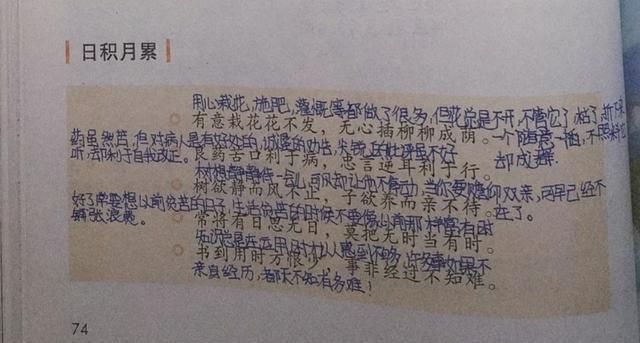 日积月累
用心栽花,施肥,灌溉等都做了很多,但花总是不开,不管它了
有意栽花花不发,无心插柳柳成荫。
药虽然苦,但对病人是有好处的,诚恳的劝告,尖锐
却成
听,却利于自我改正。
良药苦口利于病,忠言逆耳利于行。
树想静静待一会儿,可风却让他不停动,当你要赡仰双亲,
树欲静而风不止,子欲养而亲不待。
在了。
以前贫苦的日子,生活贫苦的时候不要像以前那样
铺张浪费。
常将有日思无日,莫把无时当有时。
知识总是在运用时才让人感到不够,许多事如果不
书到用时方恨少,事非经过不知难。
亲自经历,都不知有多难!
74